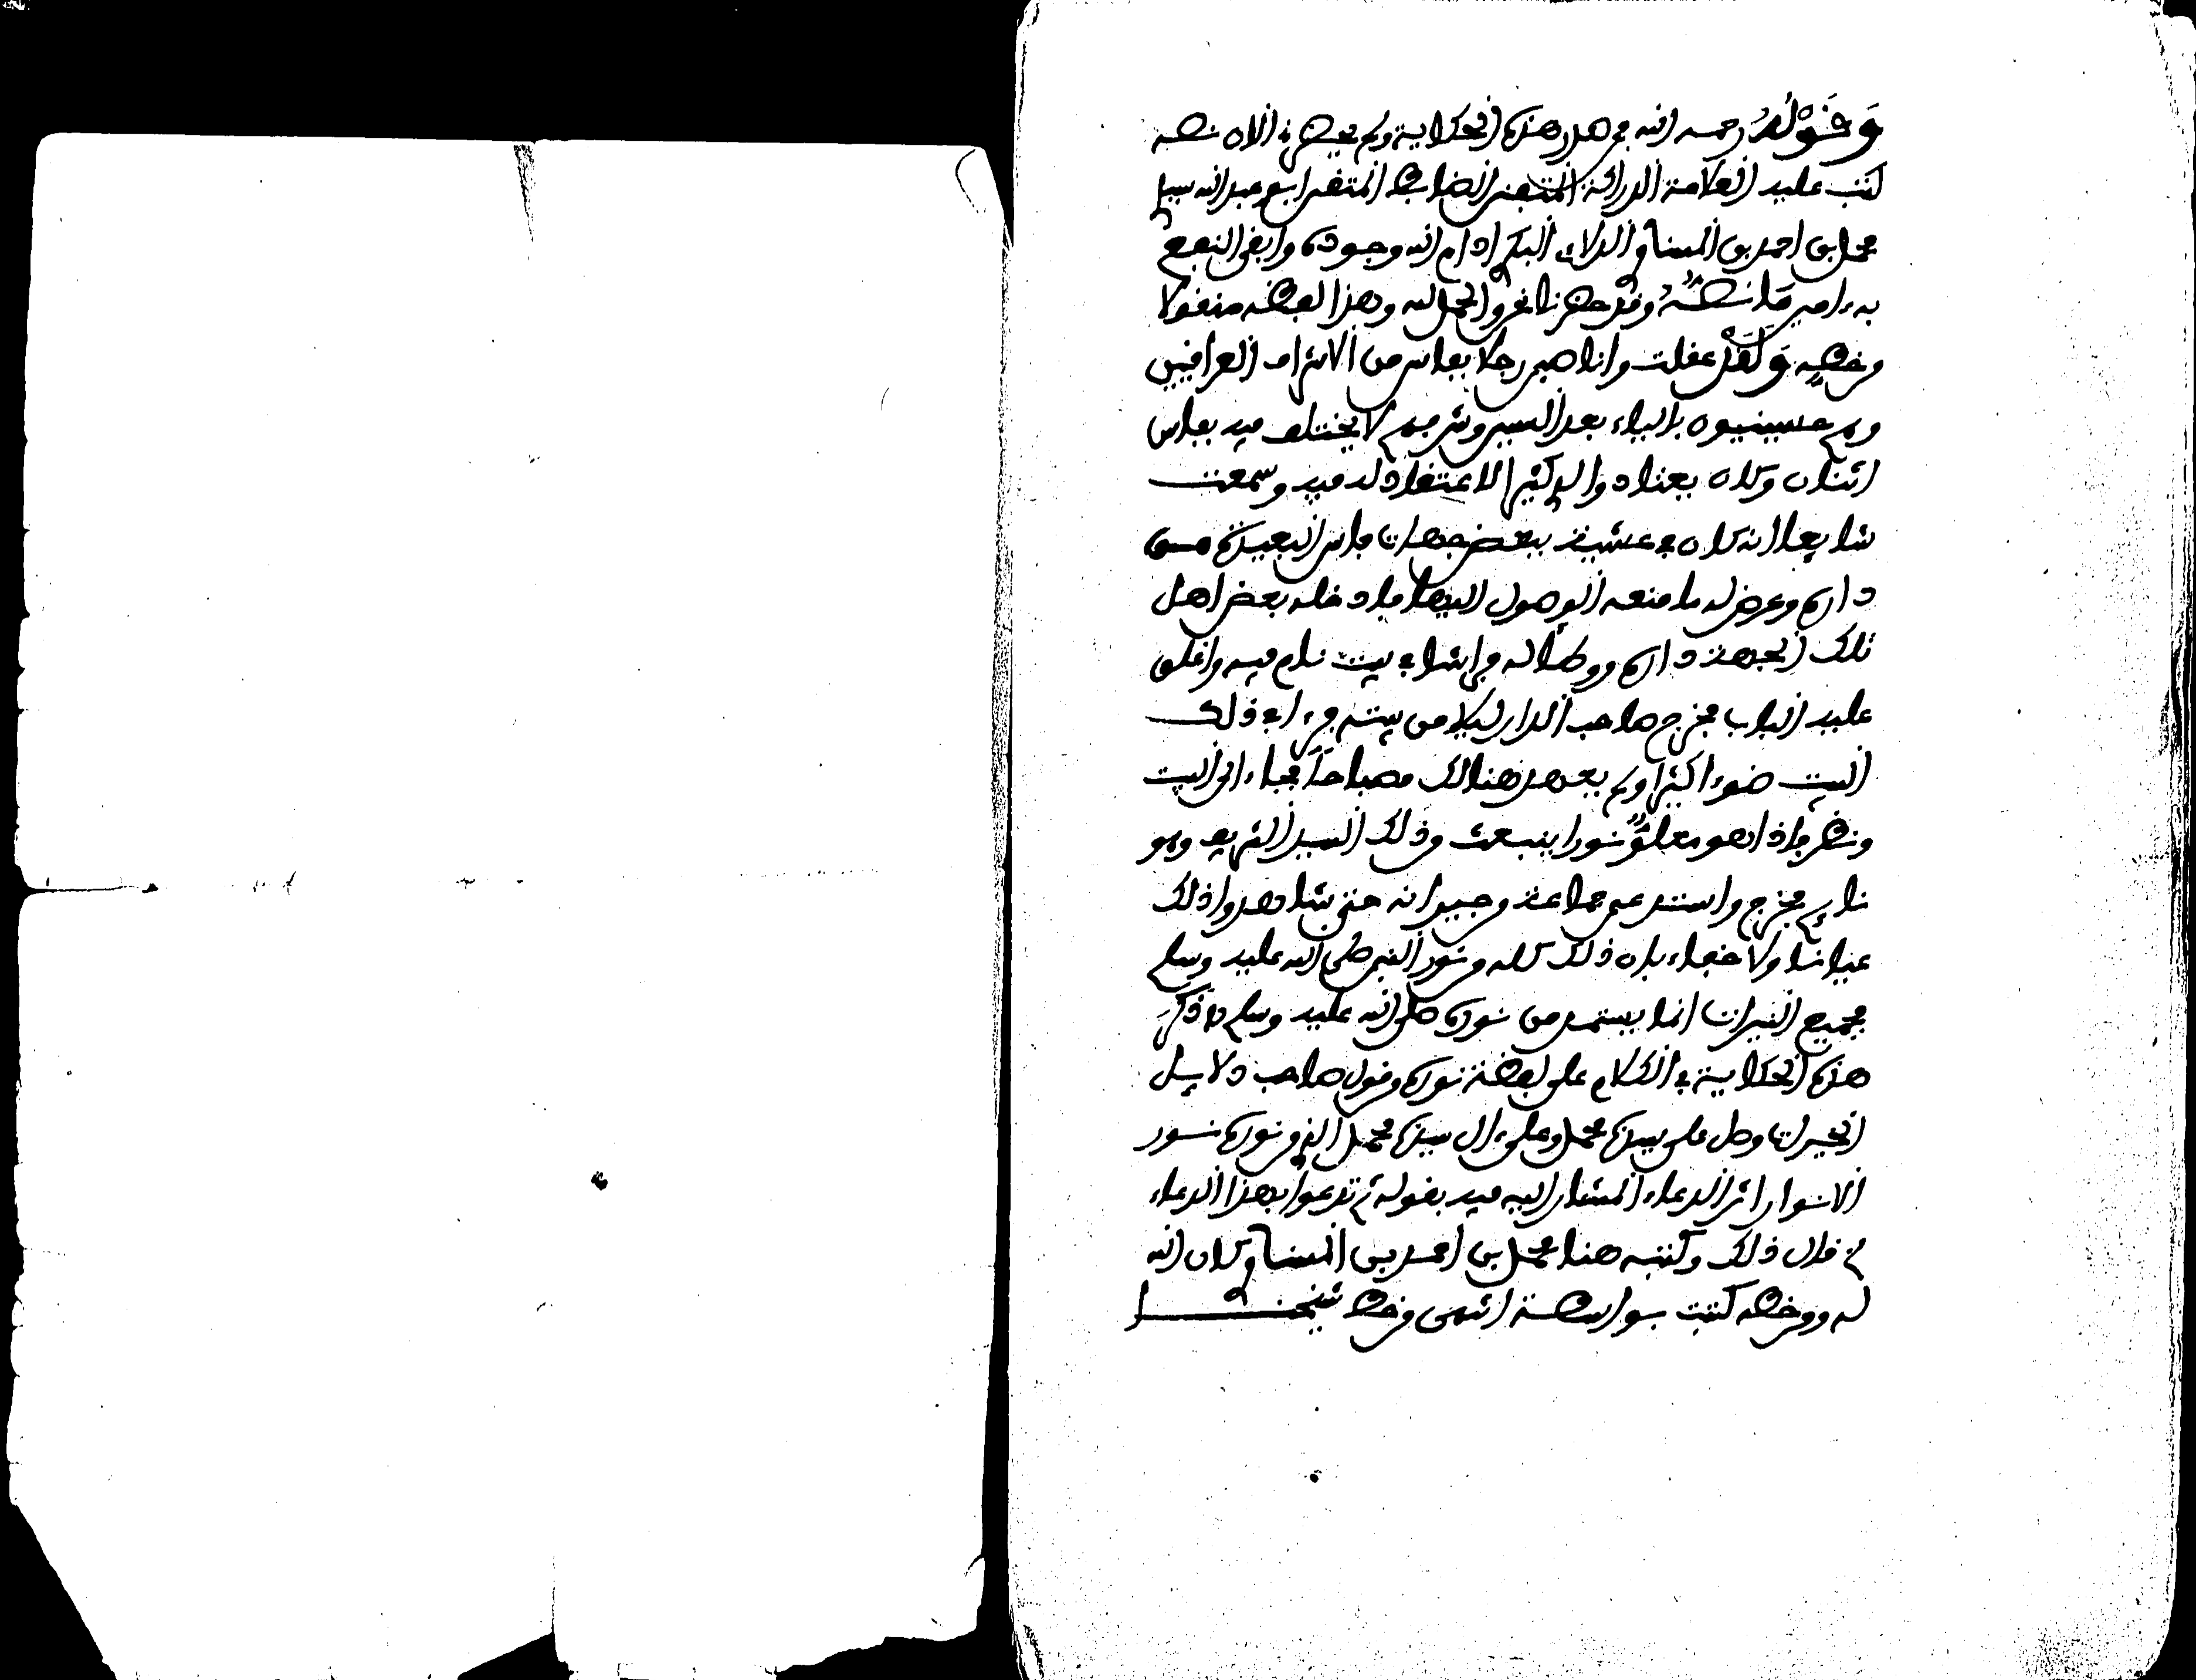 وَقَوْلُهُ رحمه الله في هذه الحكاية ولم يحضرني الان نصه
كتب عليه العلامة الدراكة المتفنن الضابط المتقن ابو عبد الله سيدي
محمد بن احمد بن المسناوي الدلائي البكري ادام الله وجوده وابقى النفع
به ءامين مَا نَصُّهُ وقد حضرنا نحن والحمد لله وهذا لفظه منقولا
من خطه وَلَقَدْ عقلت وانا صبي رجلا بفاس من الاشراف العراقيين
وهم حسينيون بالياء بعد السين وشرفهم لا يختلف فيه بفاس
اثنان وكان يعتاد والدي كثير الاعتقاد له فيه وسمعت
شايعا انه كان في عشية ببعض جهات فاس البعيدة من
داره وعرض له ما منعه الوصول اليها فادخله بعض اهل
تلك الجهة داره ووطأ له فراشا في بيت نام فيه واغلق
عليه الباب فخرج صاحب الدار ليلا من بيته فرءا في ذلك
البيت ضوءا كثيرا ولم يعهد هنالك مصباحا فجاء الى البيت
ونظر فاذا هو مغلق نورا ينبعث من ذلك السيد الشريف وهو
نايم فخرج واستدعى جماعة من جيرانه حتى شاهدوا ذلك
عيانا ولا خفاء بان ذلك كله من نور النبي صلى الله عليه وسلم
فجميع النيرات انما يستمد من نوره صلى الله عليه وسلم ذكر
هذه الحكاية في الكلام على لفظة نوره من قول صاحب دلايل
الخيرات وصل على سيدنا محمد وعلى ءال سيدنا محمد الذي نوره من نور
الانوار اثر الدعاء المشار اليه فيه بقوله ثم تدعوا بهذا الدعاء
ثم قال ذلك وكتبه هنا محمد بن احمد بن المسناوي كان الله
له ومن خطه كتبت بواسطة انتهى من خط شيخنا